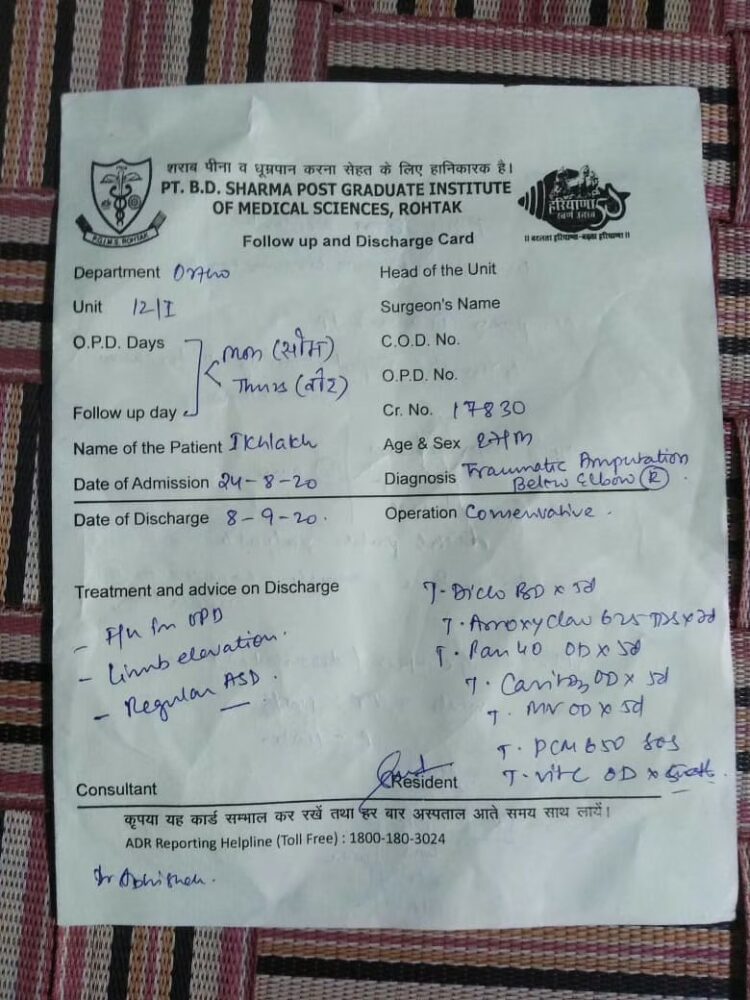 शराब पीना व धूम्रपान करना सेहत के लिए हानिकारक है।
PT. B.D. SHARMA POST GRADUATE INSTITUTE
OF MEDICAL SCIENCES, ROHTAK
P.G.I.M.S. ROHTAK
हरियाणा
स्वर्ण उत्सव
॥ बदलता हरियाणा-बढ़ता हरियाणा ॥
Follow up and Discharge Card
Department Ortho
Head of the Unit
Unit 12/I
Surgeon's Name
O.P.D. Days Mon (सोम)
C.O.D. No.
Thurs (वीर)
O.P.D. No.
Follow up day
Cr. No. 17830
Name of the Patient Ikhlakh
Age & Sex 27/M
Date of Admission 24-8-20
Diagnosis Traumatic Amputation
Below Elbow (R)
Date of Discharge 8-9-20.
Operation Conservative.
Treatment and advice on Discharge
- F/u in OPD
- Limb elevation.
- Regular ASD.
T. Diclo BD x 5d
T. Amoxyclav 625 TDS x
T. Pan 40 OD x 5d
T. OD x 5d
T. MV OD x 5d
T. PCM 650 SOS
T. Vit C OD x
Consultant
Resident
कृपया यह कार्ड सम्भाल कर रखें तथा हर बार अस्पताल आते समय साथ लायें।
ADR Reporting Helpline (Toll Free) : 1800-180-3024
Dr Abhishek.